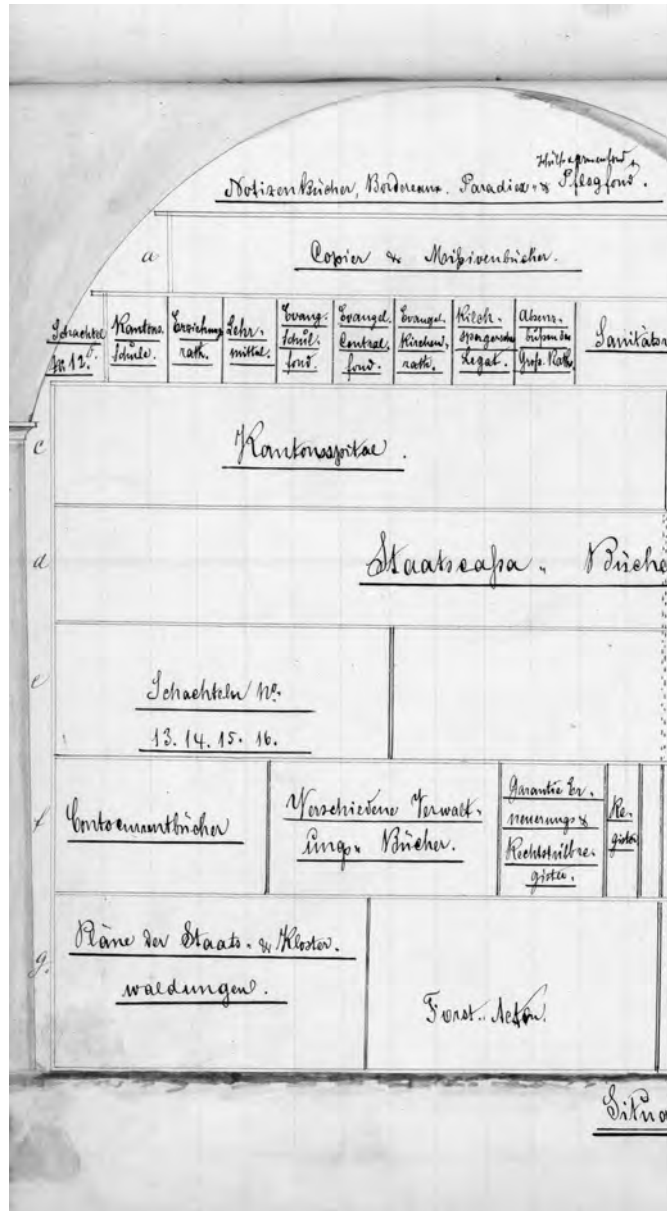 Schul & Armenfond &
Notizenbücher, Bordereaux. Paradies- & Pflegfond.
a
Copier & Missivenbücher.
Schachtel
No 12.
Kantons.
schule.
Erziehungs
rath.
Lehr-
mittel.
Evang.
Schul.
fond.
Evangel.
Central.
fond.
Evangel.
Kirchen.
rath.
Kilch-
spergersche
Legat.
Absenz-
bussen des
Gross. Raths
Sanitäts
c
Kantonsspital.
d
Staatscassa- Büche
e
Schachteln No.
13. 14. 15. 16.
f
Contocurrentbücher
Verschiedene Verwalt-
ungs- Bücher.
Garantie Er-
neuerungs &
Rechtstrilbre-
gister.
Re-
gister
g.
Pläne der Staats- & Kloster-
waldungen.
Forst- Acten.
Situa